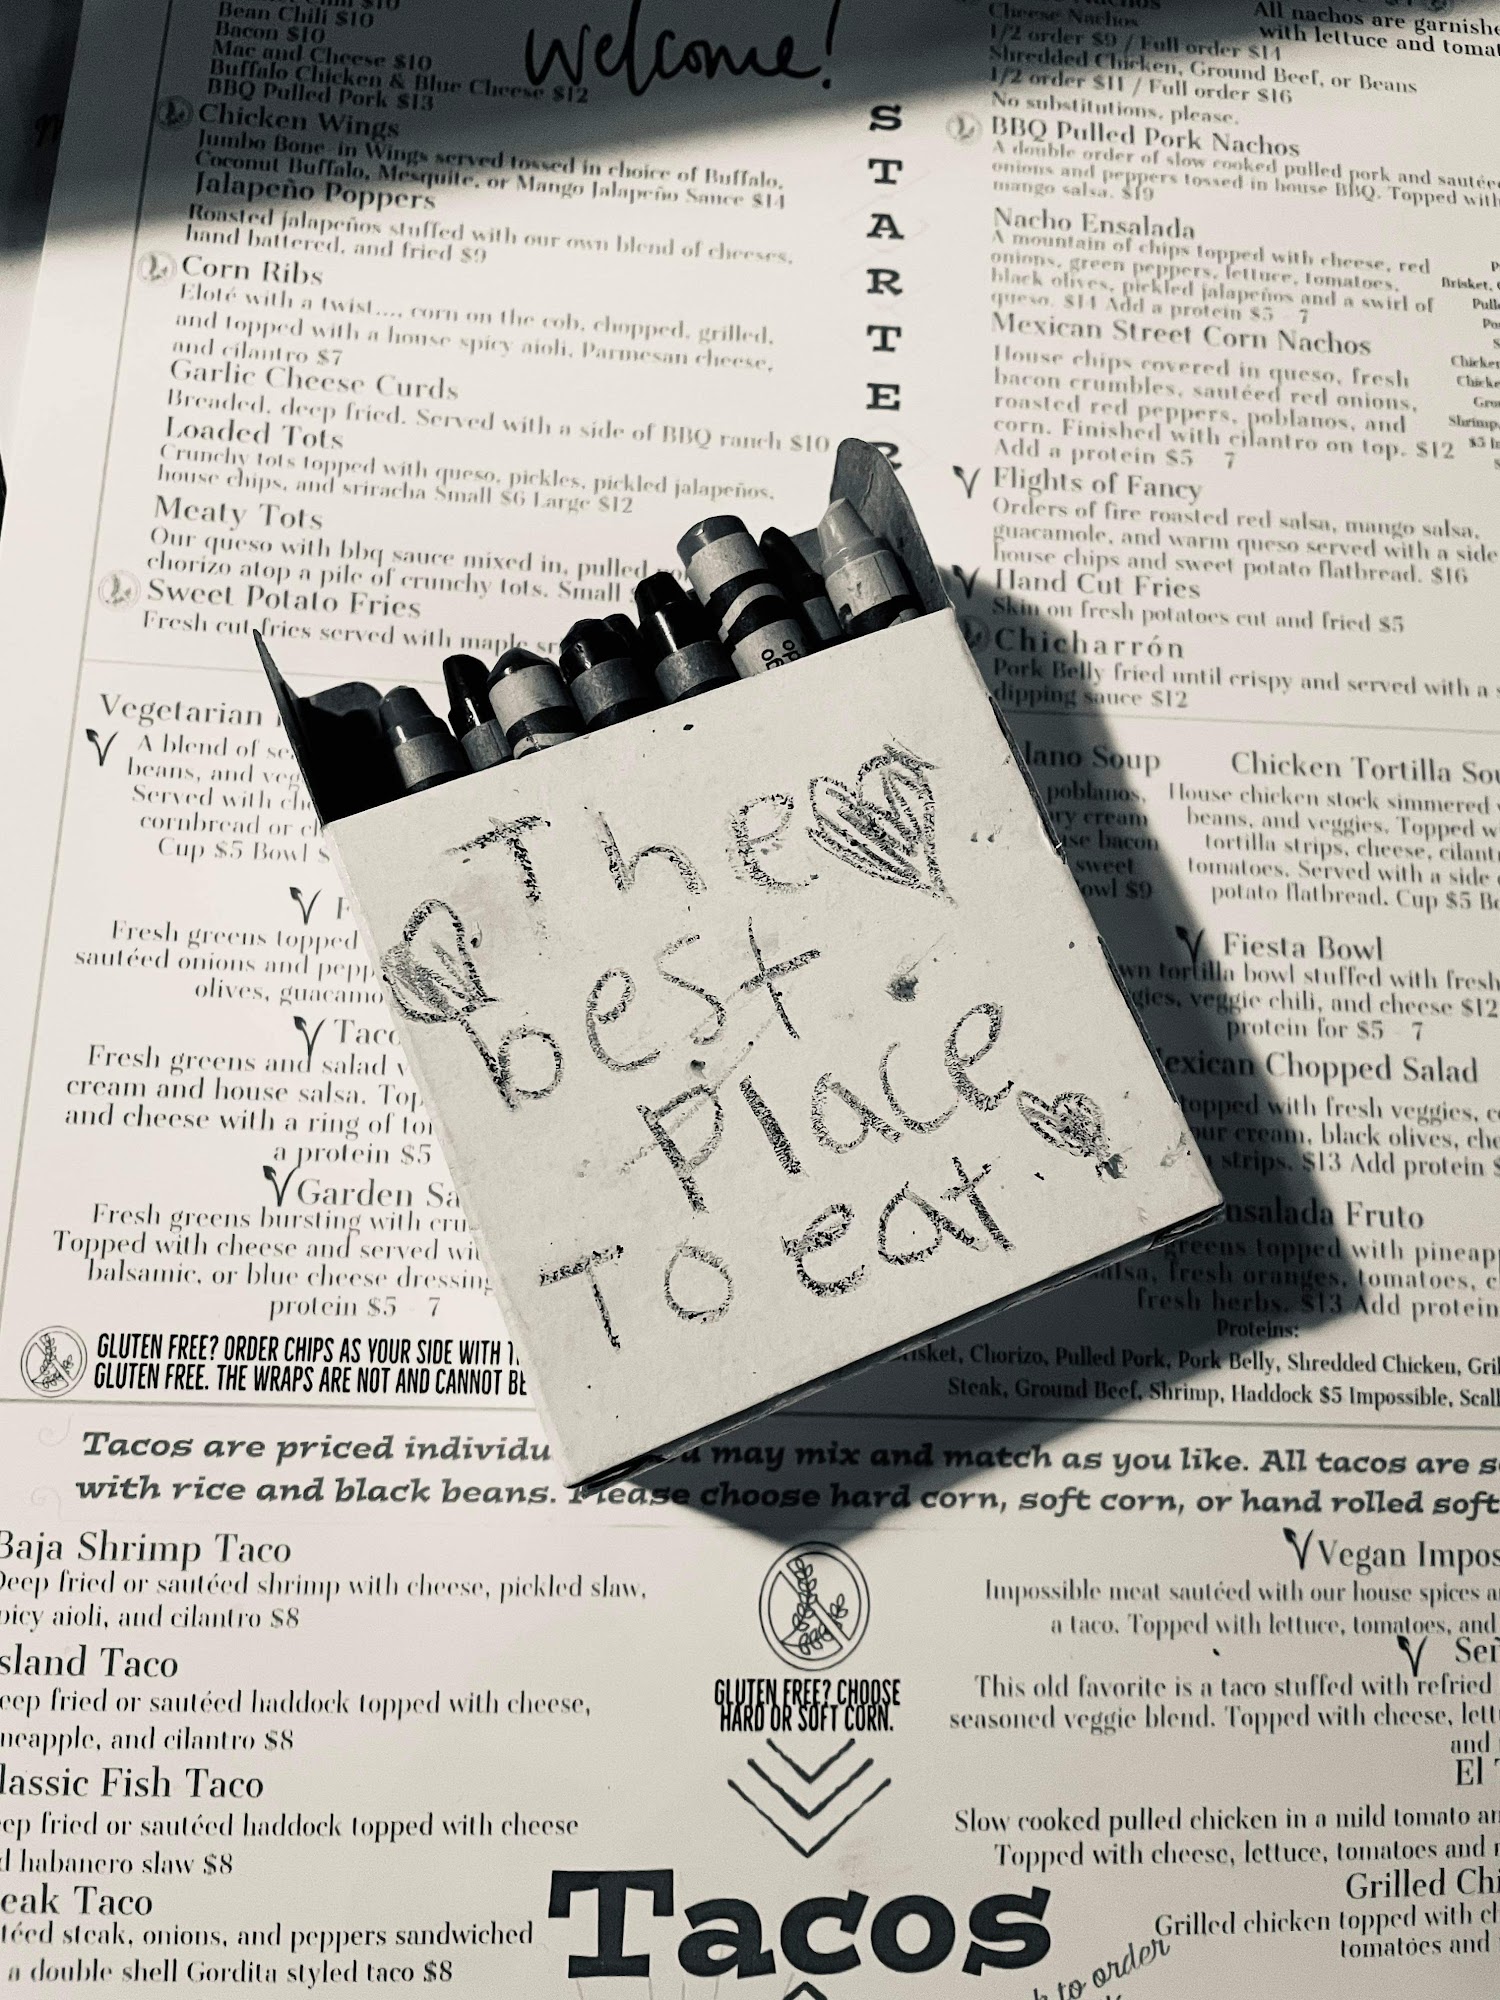 Bean Chili $10
Bacon $10
Mac and Cheese $10
Buffalo Chicken & Blue Cheese $12
BBQ Pulled Pork $13
Chicken Wings
Jumbo Bone in Wings served tossed in choice of Buffalo,
Coconut Buffalo, Mesquite, or Mango Jalapeño Sauce $14
Jalapeño Poppers
Roasted jalapeños stuffed with our own blend of cheeses,
hand battered, and fried $9
Corn Ribs
Eloté with a twist..., corn on the cob, chopped, grilled,
and topped with a house spicy aioli, Parmesan cheese,
and cilantro $7
Garlic Cheese Curds
Breaded, deep fried. Served with a side of BBQ ranch $10
Loaded Tots
Crunchy tots topped with queso, pickles, pickled jalapeños,
house chips, and sriracha Small $6 Large $12
Meaty Tots
Our queso with bbq sauce mixed in, pulled
chorizo atop a pile of crunchy tots. Small
Sweet Potato Fries
Fresh cut fries served with maple
welcome!
STARTER
Cheese Nachos
1/2 order $9 / Full order $14
Shredded Chicken, Ground Beef, or Beans
1/2 order $11 / Full order $16
No substitutions, please.
All nachos are
with lettuce and
BBQ Pulled Pork Nachos
A double order of slow cooked pulled pork and
onions and peppers tossed in house BBQ. Topped with
mango salsa. $19
Nacho Ensalada
A mountain of chips topped with cheese, red
onions, green peppers, lettuce, tomatoes,
black olives, pickled jalapeños and a swirl of
queso. $14 Add a protein $5 7
Mexican Street Corn Nachos
House chips covered in queso, fresh
bacon crumbles, sautéed red onions,
roasted red peppers, poblanos, and
corn. Finished with cilantro on top. $12
Add a protein $5 7
Flights of Fancy
Orders of fire roasted red salsa, mango salsa,
guacamole, and warm queso served with a side
house chips and sweet potato flatbread. $16
Hand Cut Fries
Skin on fresh potatoes cut and fried $5
Chicharrón
Pork Belly fried until crispy and served with a
dipping sauce $12
Brisket,
Shrimp,
The
best
place
To eat
Vegetarian
A blend of
beans, and
Served with
cornbread or
Cup $5 Bowl
Fresh greens topped
sautéed onions and
olives,
Fresh greens and salad
cream and house salsa.
and cheese with a ring of
a protein $5
Garden
Fresh greens bursting with
Topped with cheese and served
balsamic, or blue cheese dressing
protein $5 7
Soup
poblanos,
cream
bacon
sweet
$9
Chicken Tortilla
House chicken stock simmered
beans, and veggies. Topped
tortilla strips, cheese,
tomatoes. Served with a side
potato flatbread. Cup $5
Fiesta Bowl
tortilla bowl stuffed with fresh
veggie chili, and cheese $12
protein for $5 7
Chopped Salad
topped with fresh veggies,
cream, black olives,
strips. $13 Add protein
Fruto
greens topped with
fresh oranges, tomatoes,
fresh herbs. $13 Add protein
Proteins:
Chorizo, Pulled Pork, Pork Belly, Shredded Chicken,
Steak, Ground Beef, Shrimp, Haddock $5 Impossible,
GLUTEN FREE? ORDER CHIPS AS YOUR SIDE WITH
GLUTEN FREE. THE WRAPS ARE NOT AND CANNOT
Tacos are priced may mix and match as you like. All tacos are
with rice and black beans. Please choose hard corn, soft corn, or hand rolled soft
Baja Shrimp Taco
Deep fried or sautéed shrimp with cheese, pickled slaw,
aioli, and cilantro $8
Taco
fried or sautéed haddock topped with cheese,
and cilantro $8
Fish Taco
fried or sautéed haddock topped with cheese
habanero slaw $8
Taco
steak, onions, and peppers sandwiched
a double shell Gordita styled taco $8
GLUTEN FREE? CHOOSE
HARD OR SOFT CORN.
Tacos
to order
Vegan
Impossible meat sautéed with our house spices
a taco. Topped with lettuce, tomatoes, and
This old favorite is a taco stuffed with refried
seasoned veggie blend. Topped with cheese,
and
El
Slow cooked pulled chicken in a mild tomato
Topped with cheese, lettuce, tomatoes and
Grilled
Grilled chicken topped with
tomatoes and